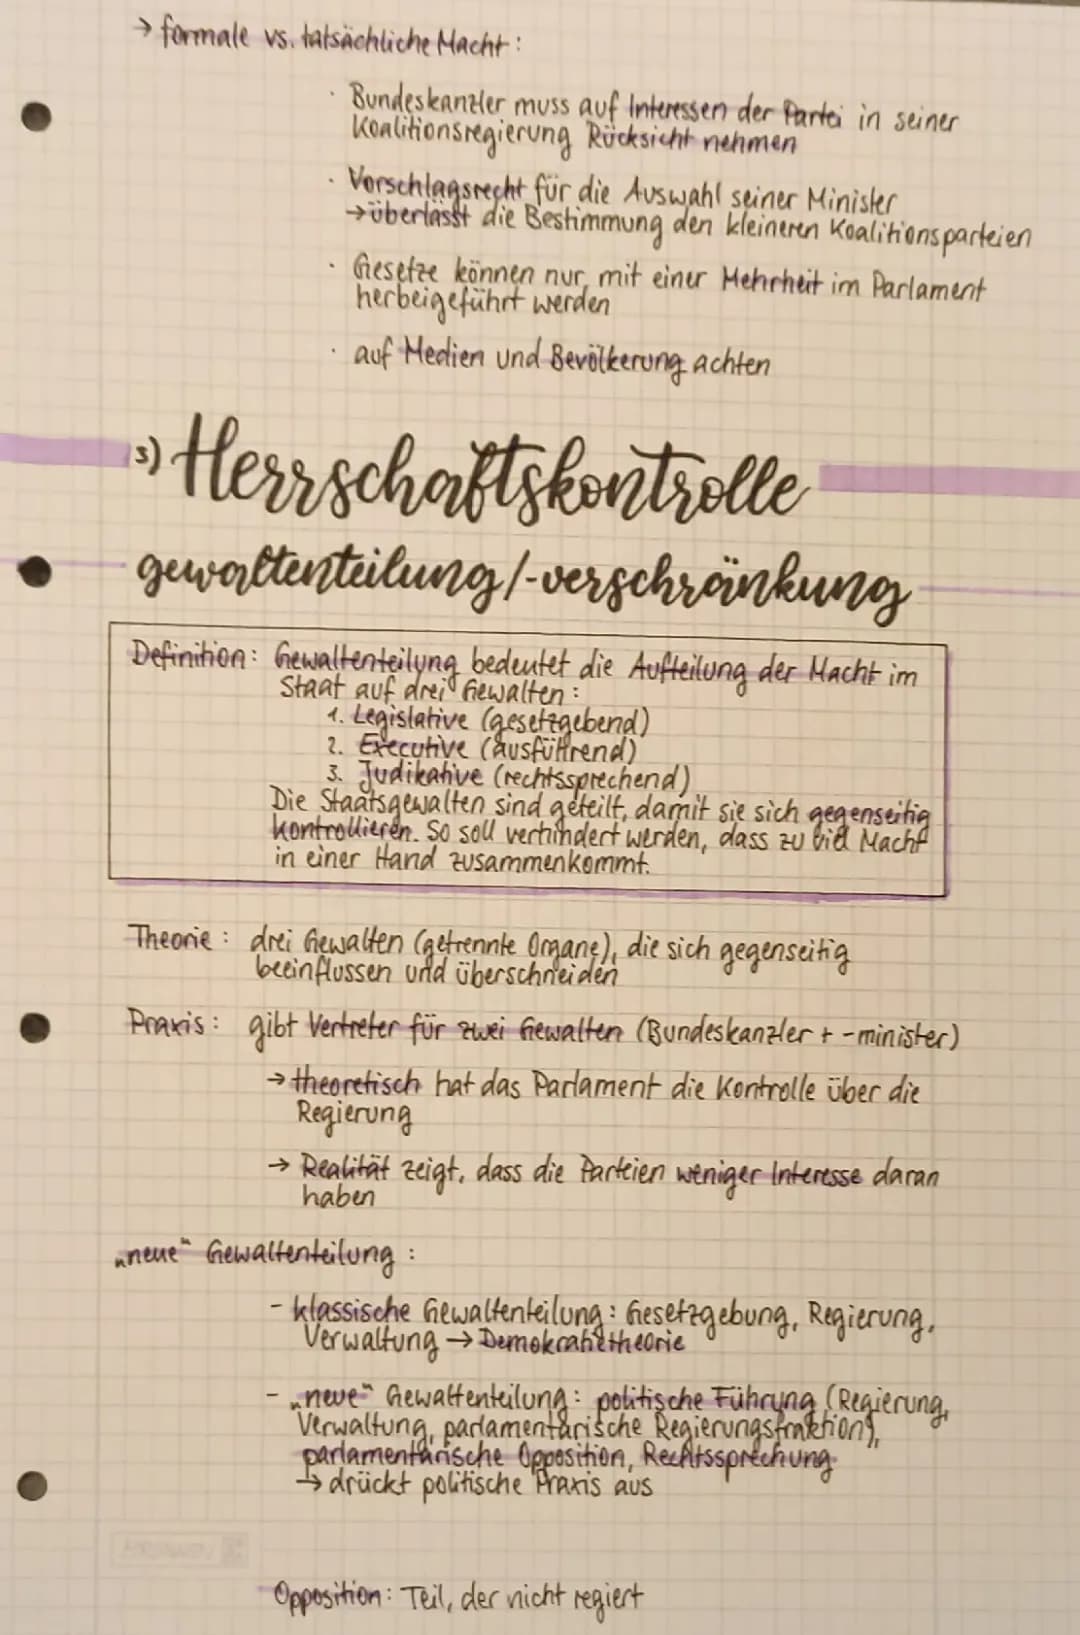 → formale vs. tatsächliche Macht:
· Bundeskanzler muss auf Interessen der Partei in seiner
Koalitionsregierung Rücksicht nehmen
· Vorschlagsrecht für die Auswahl seiner Minister
→ überlässt die Bestimmung den kleineren Koalitionsparteien
· Gesetze können nur mit einer Mehrheit im Parlament
herbeigeführt werden
· auf Medien und Bevölkerung achten
3) Herrschaftskontrolle
gewaltenteilung/-verschränkung
Definition: Gewaltenteilung bedeutet die Aufteilung der Macht im
Staat auf drei Gewalten:
1. Legislative (gesetzgebend)
2. Executive (ausführend)
3. Judikative (rechtssprechend)
Die Staatsgewalten sind geteilt, damit sie sich gegenseitig
kontrollieren. So soll verhindert werden, dass zu viel Macht
in einer Hand zusammenkommt.
Theorie: drei Gewalten (getrennte Organe), die sich gegenseitig
beeinflussen und überschneiden
Praxis: gibt Vertreter für zwei Gewalten (Bundeskanzler + -minister)
→ theoretisch hat das Parlament die Kontrolle über die
Regierung
→ Realität zeigt, dass die Parteien weniger Interesse daran
haben
„neue“ Gewaltenteilung:
- klassische Gewaltenteilung: Gesetzgebung, Regierung,
Verwaltung → Demokratietheorie
- „neue“ Gewaltenteilung: politische Führung (Regierung,
Verwaltung, parlamentarische Regierungsfraktion),
parlamentarische Opposition, Rechtssprechung
→ drückt politische Praxis aus
Opposition: Teil, der nicht regiert